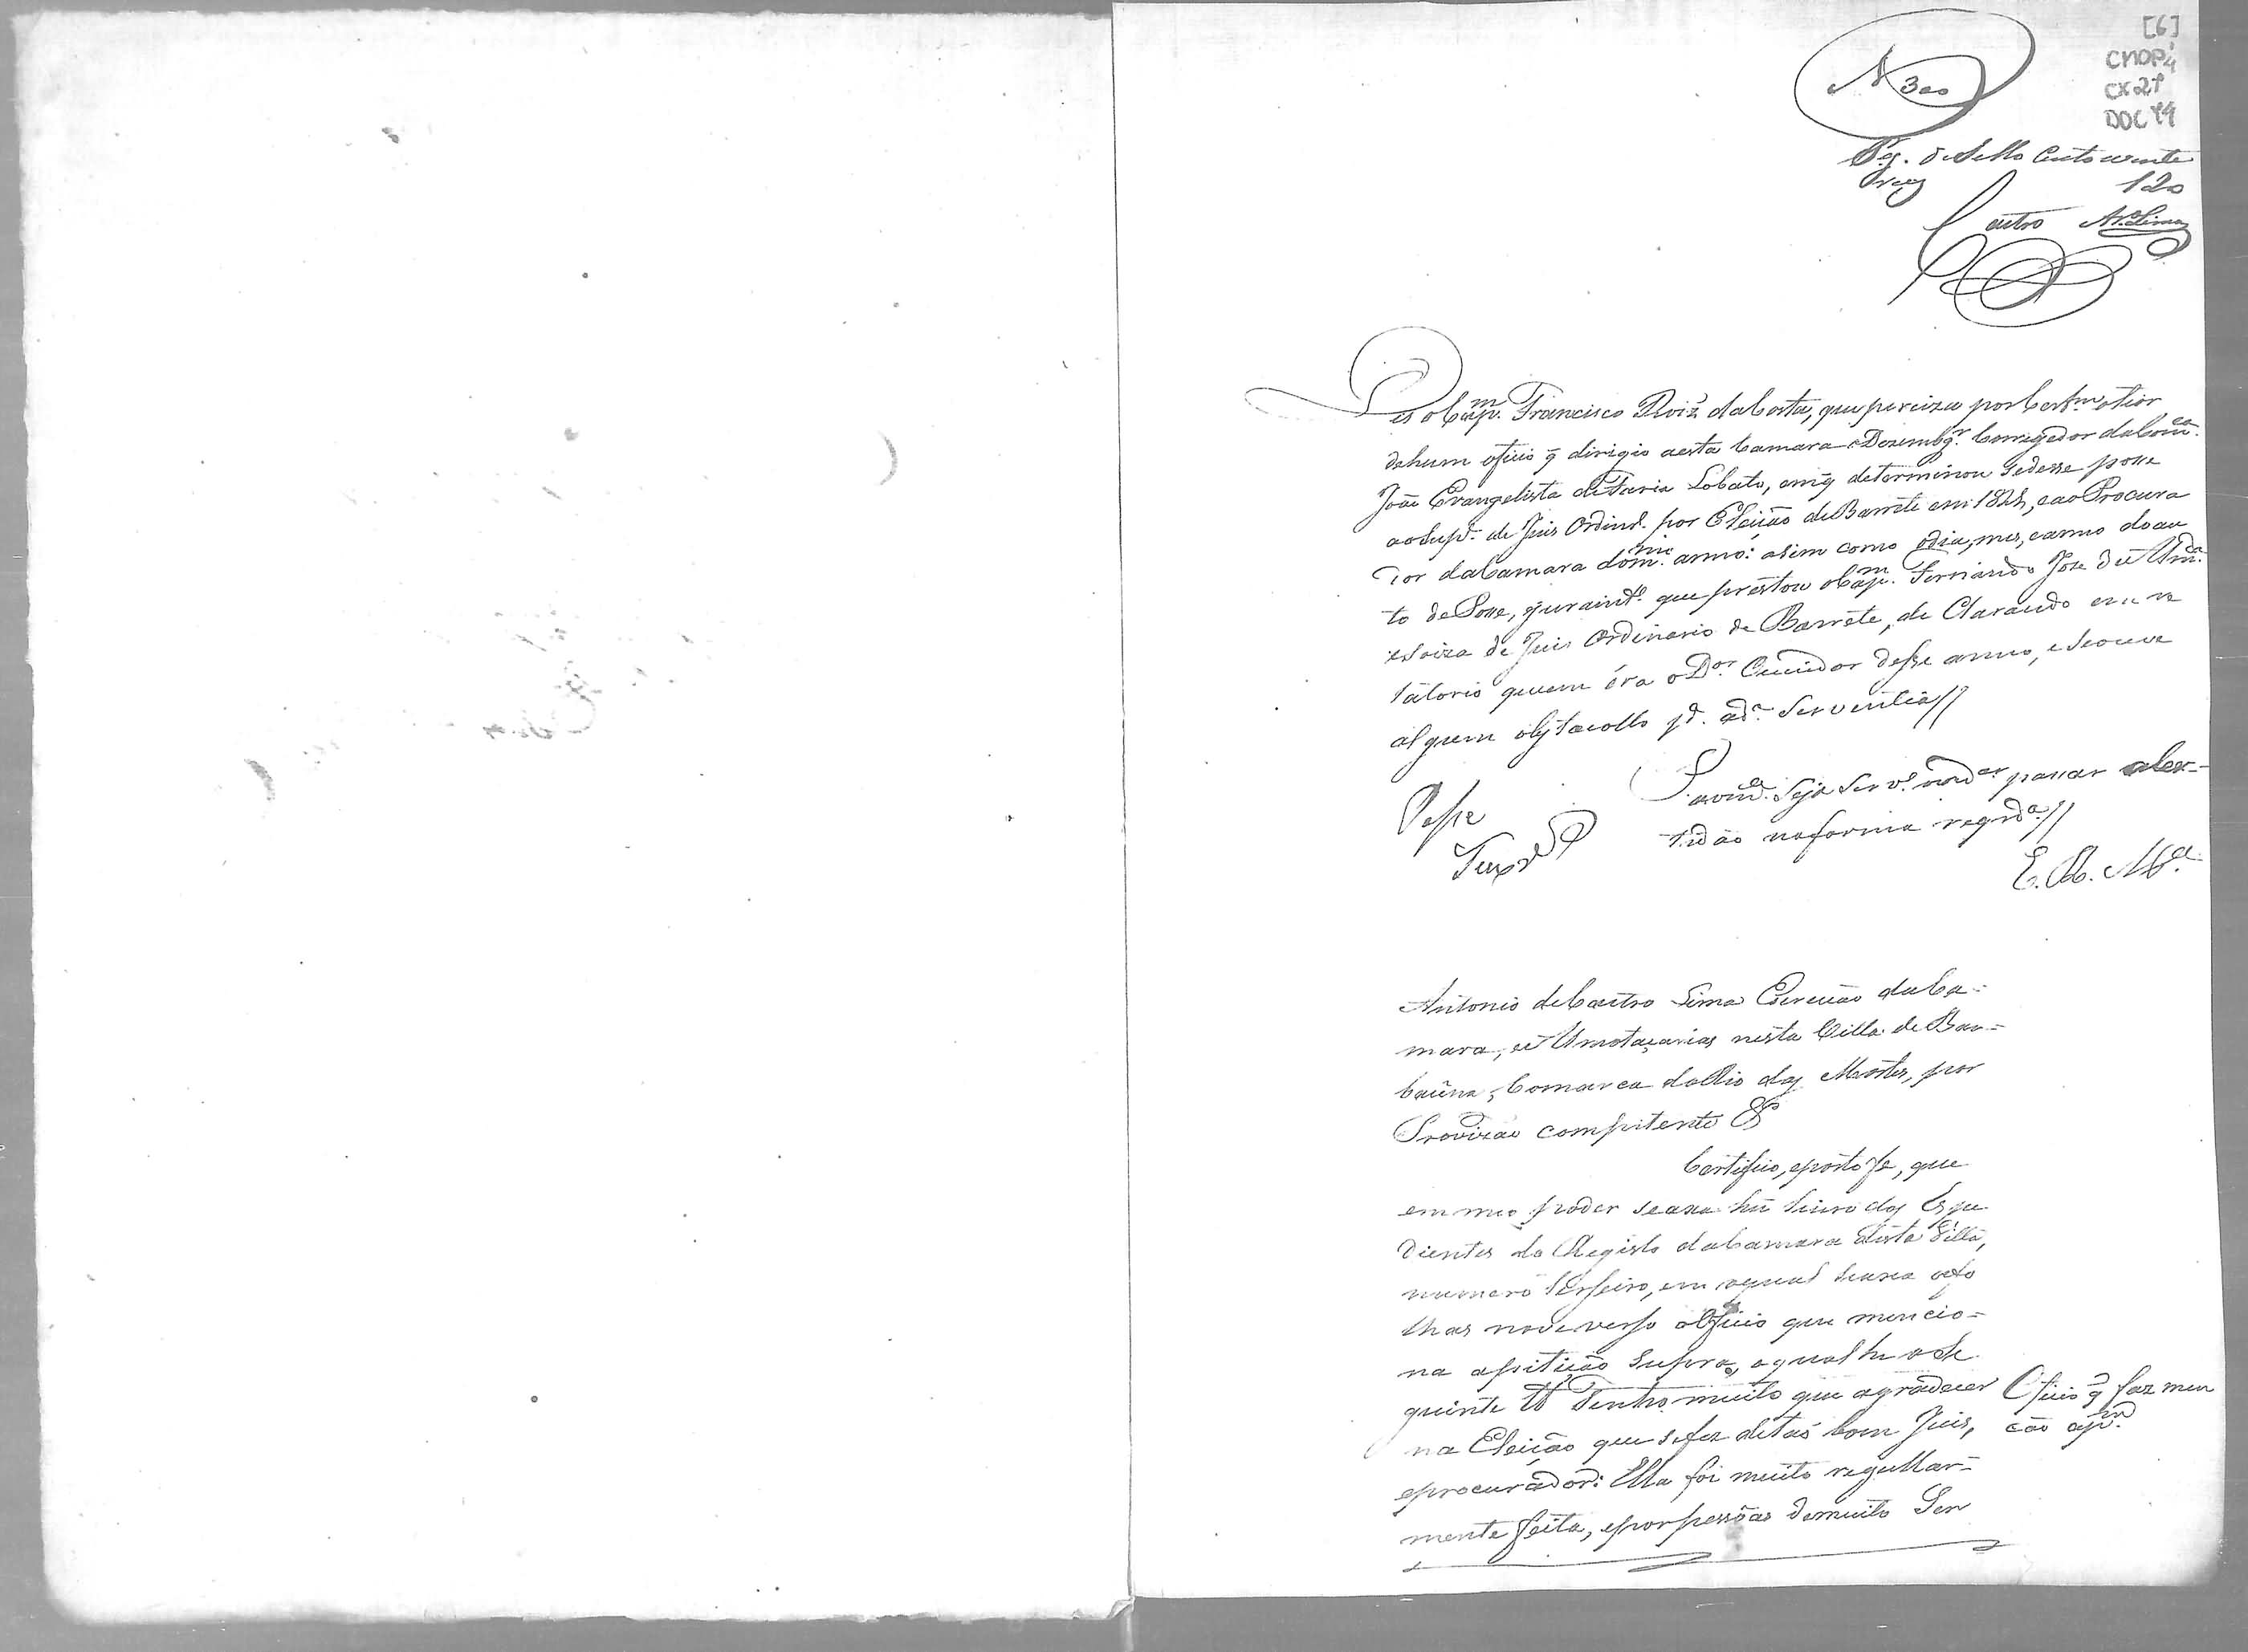 [6]
CMOP
CX 21
DOC 49
N 300
Pg. de Sello Cento e vinte
reis 120
Castro Ar. Lima
Diz o Cap.m Francisco Roiz da Costa, que perciza por Cert.m o thior
de hum oficio q̃ dirigio a esta Camara o Dezembg.r Corregedor da Com.ca
João Evangelista de Faria Lobato, em q̃ determinou se desse posse
ao de Juis Ordin.o por Eleição de Barrete em 1824, e ao Procura
dor da Camara do m.mo anno: asim como o dia, mes, e anno do au
to de Posse, e juram.to que prestou o Cap.m Fernando Joze de Alm.da
e Soiza de Juis Ordinario de Barrete, declarando em re
latorio quem éra o D.or Ouvidor desse anno, e se ouve
algum obstacollo p.a a d.a Serventia//
P. a vm.ce Seja Serv.o mandar passar a Cer=
tidão na forma reqrd.a//
Passe
E. R. M.ce
Antonio de Castro Lima Escrivão da Ca=
mara, e Almotaçarias nesta Villa de Bar=
bacena, Comarca do Rio das Mortes, por
Provizão compitente &
Certifico, e porto fe, que
em meo poder se axa hũ Livro dos Espe
dientes do Registo da Camara desta Villa,
numero terseiro, em o qual se axa a fo
lhas nove verso o Oficio que mencio=
na a pitição supra, o qual he o Se
guinte // Tenho muito que agradecer
na Eleição que se fez de tão bom Juis,
e procurador: Ella foi muito regullar=
mente feita, e por pessôas de muito Sen
Oficio q̃ faz men
cão a p.m